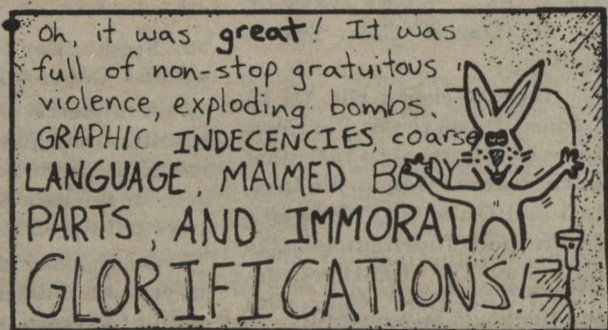 Oh, it was great! It was
full of non-stop gratuitous
violence, exploding bombs.
GRAPHIC INDECENCIES, coarse
LANGUAGE, MAIMED BODY
PARTS, AND IMMORAL
GLORIFICATIONS!